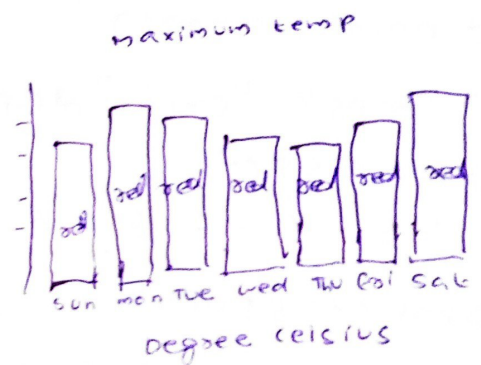 maximum temp
red red red red red red red
Sun mon Tue wed Thu Fri Sat
Degree celsius